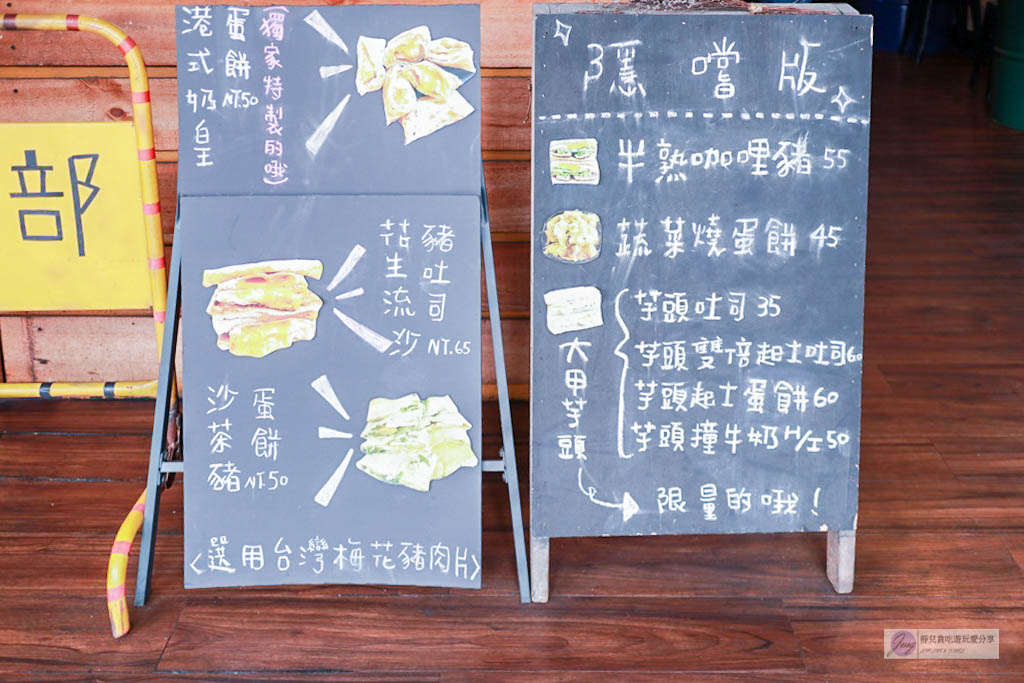 部
港式奶皇
蛋餅 NT.50
(獨家特製的哦)
花生流沙
豬吐司
NT.65
沙茶豬
蛋餅
NT.50
<選用台灣梅花豬肉片>
隱嚐版
半熟咖哩豬 55
蔬菜燒蛋餅 45
大甲芋頭
芋頭吐司 35
芋頭雙倍起士吐司 60
芋頭起士蛋餅 60
芋頭撞牛奶 H/正 50
限量的哦!
靜兒貪吃遊玩愛分享